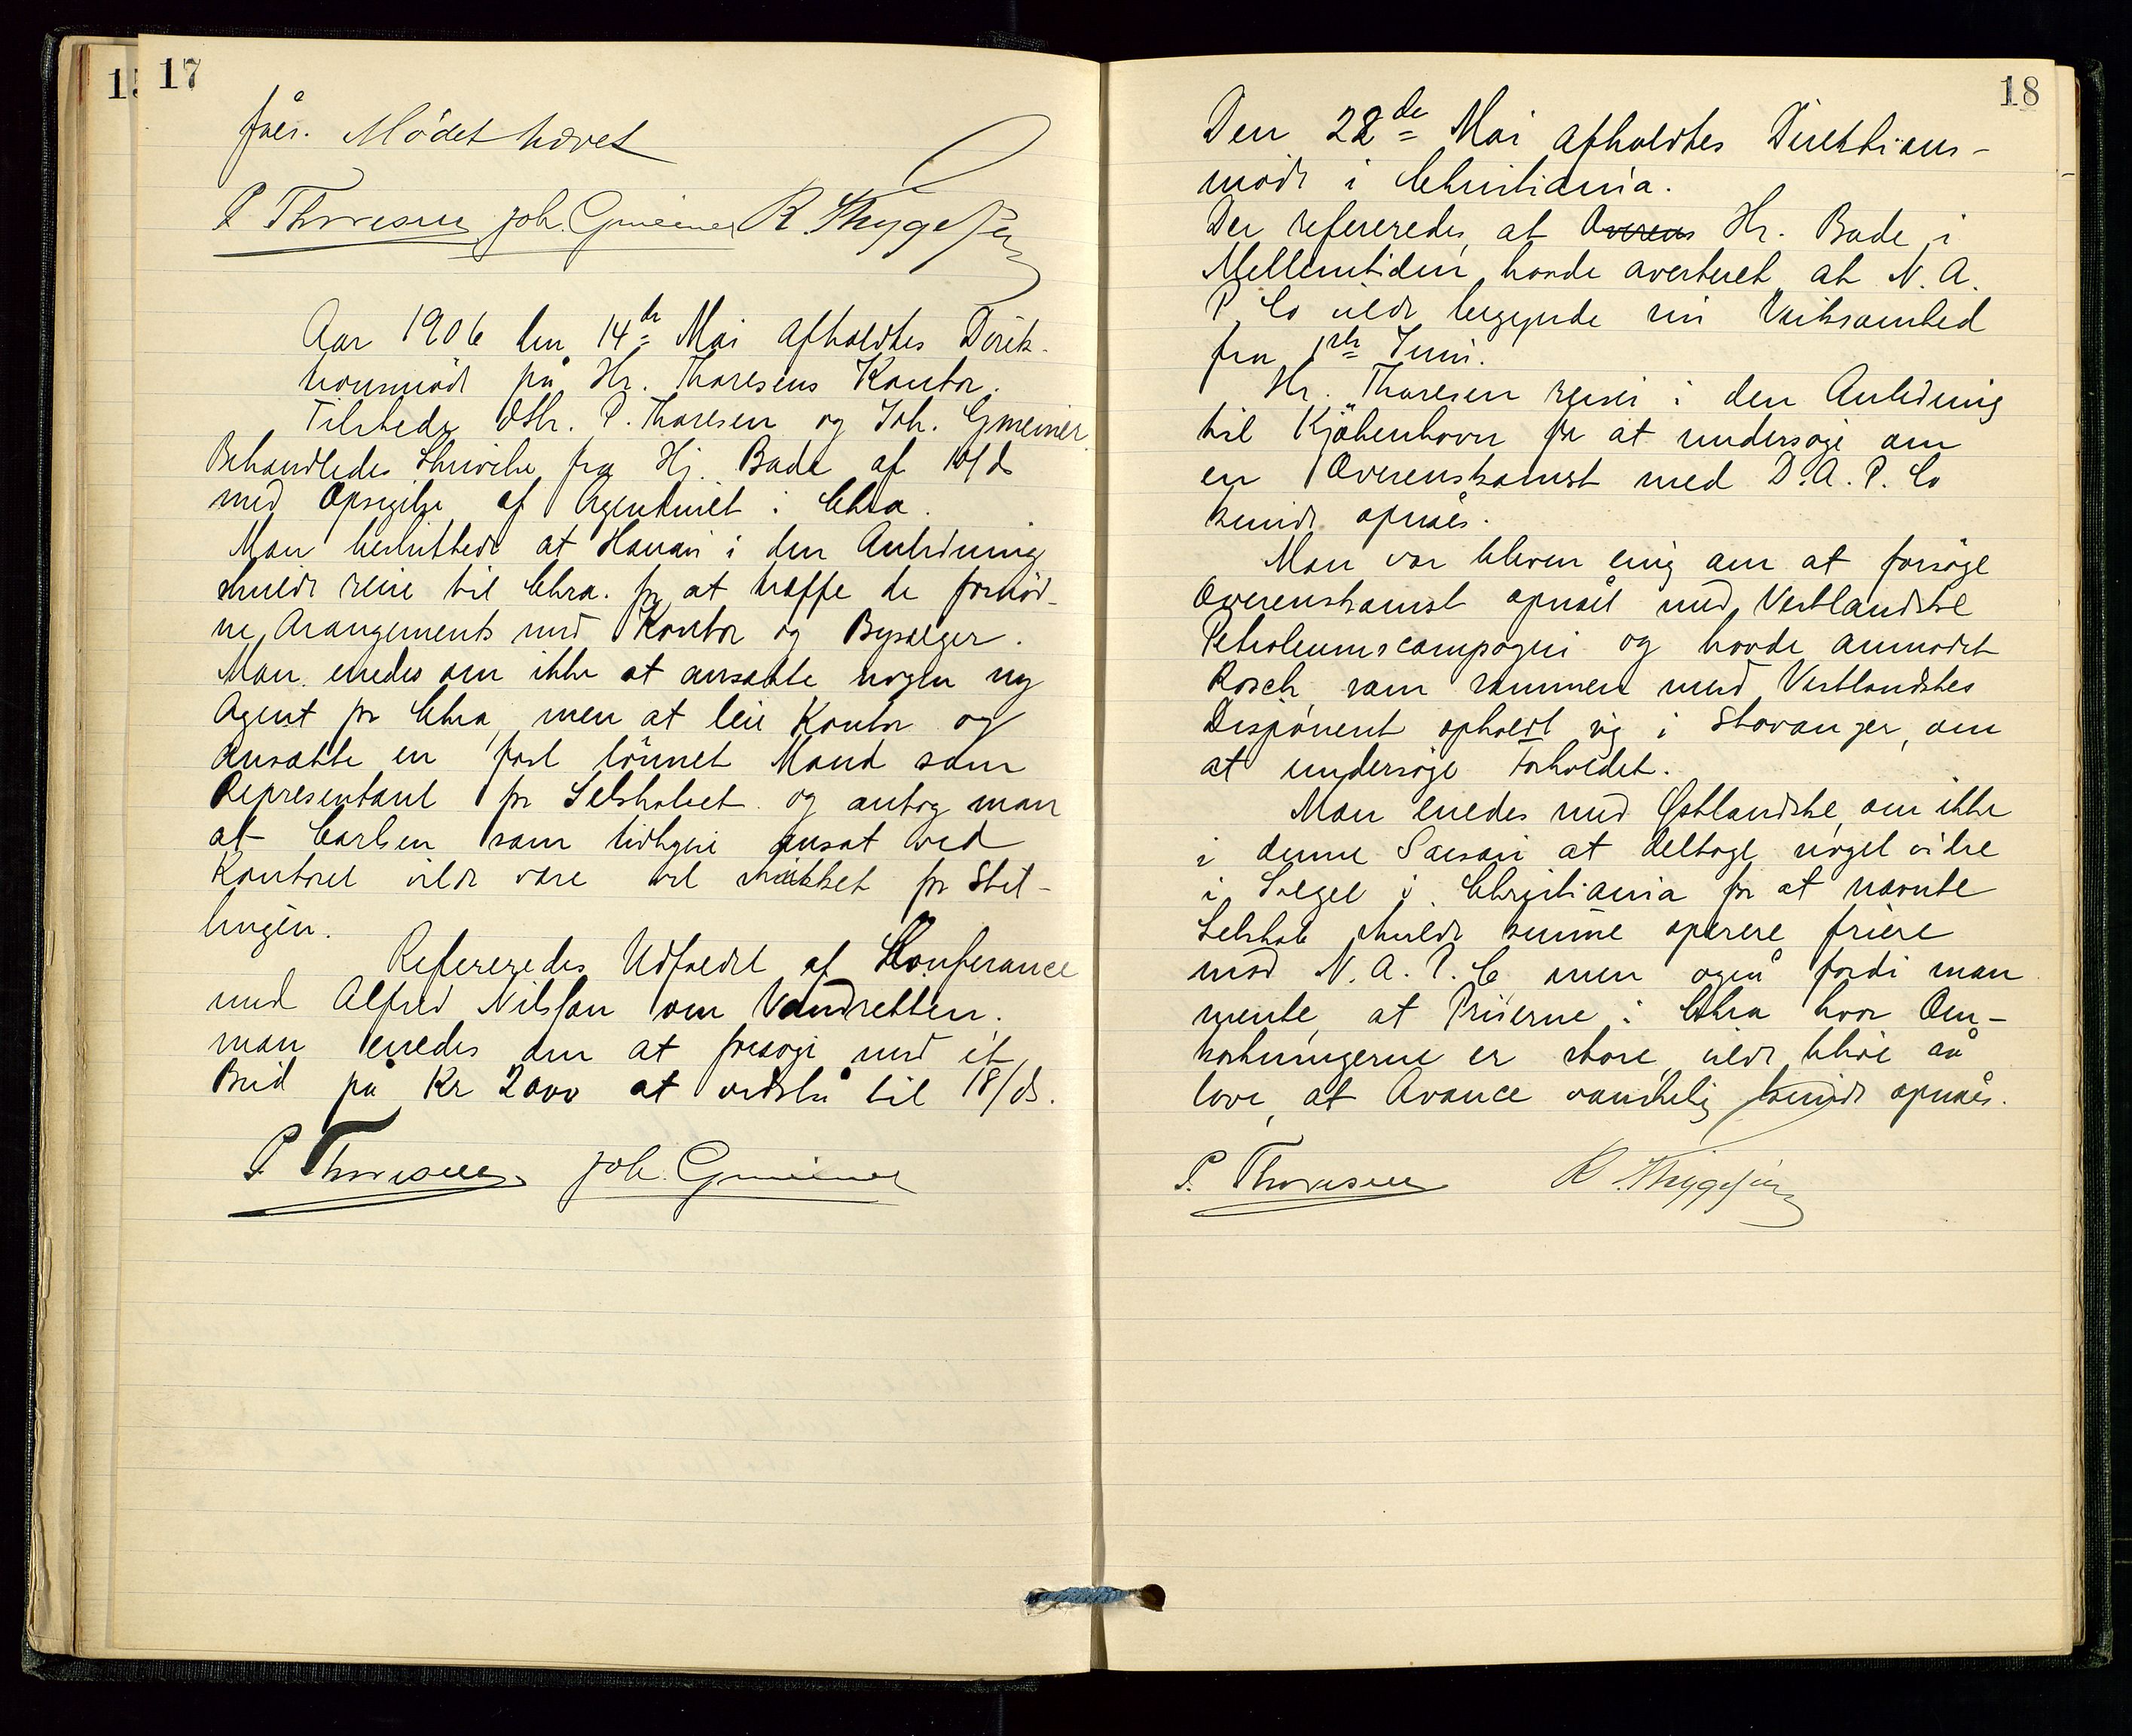 17
fåes. Mödet hævet
P Thoresen Joh. Gmeiner R. Thygesen
Aar 1906 den 14de Mai afholdtes Direk-
tionsmöde på Hr. Thoresens Kontor.
Tilstede DHr. P. Thoresen og Joh. Gmeiner
Behandledes Skrivelse fra Hj. Bade af 10/ds
med Opsigelse af Agenturet i Chra.
Man besluttede at Hansen i den Anledning
skulde reise til Chra. for at træffe de fornöd-
ne Arangements med Kontor og Bysælger.
Man enedes om ikke at ansætte nogen ny
Agent for Chra, men at leie Kontor og
ansætte en fast lönnet Mand som
Representant for Selskabet og antog man
at Carlsen som tidligere ansat ved
Kontoret vilde være vel skikket for Stil-
lingen.
Refereredes Udfaldet af Konferance
med Alfred Nilssen om Vandretten.
man enedes om at forsöge med et
Bud på Kr 2000 at vedstå til 18/ds.
P Thoresen Joh. Gmeiner
18
Den 22de Mai afholdtes Direktions-
möde i Christiania.
Der refereredes, at Overens Hr. Bade i
Mellemtiden havde averteret at N. A.
P. Co vilde begynde sin Virksomhed
fra 1ste Juni.
Hr. Thoresen reiser i den Anledning
til Kjöbenhavn for at undersöge om
en Overenskomst med D. A. P. Co
kunde opnåes.
Man var bleven enig om at forsöge
Overenskomst opnået med Vestlandske
Petroleumscompagni og havde anmodet
Rosch, som sammen med Vestlandskes
Disponent opholdt sig i Stavanger, om
at undersöge Forholdet.
Man enedes med Østlandske om ikke
i denne Saison at deltage noget videre
i Salget i Christiania for at nævnte
Selskab skulde kunne operere friere
mod N. A. P. C men også fordi man
mente, at Priserne i Chra hvor Om-
kostningerne er store, vilde blive så
lave, at Avance vanskelig kunde opnåes.
P. Thoresen R. Thygesen